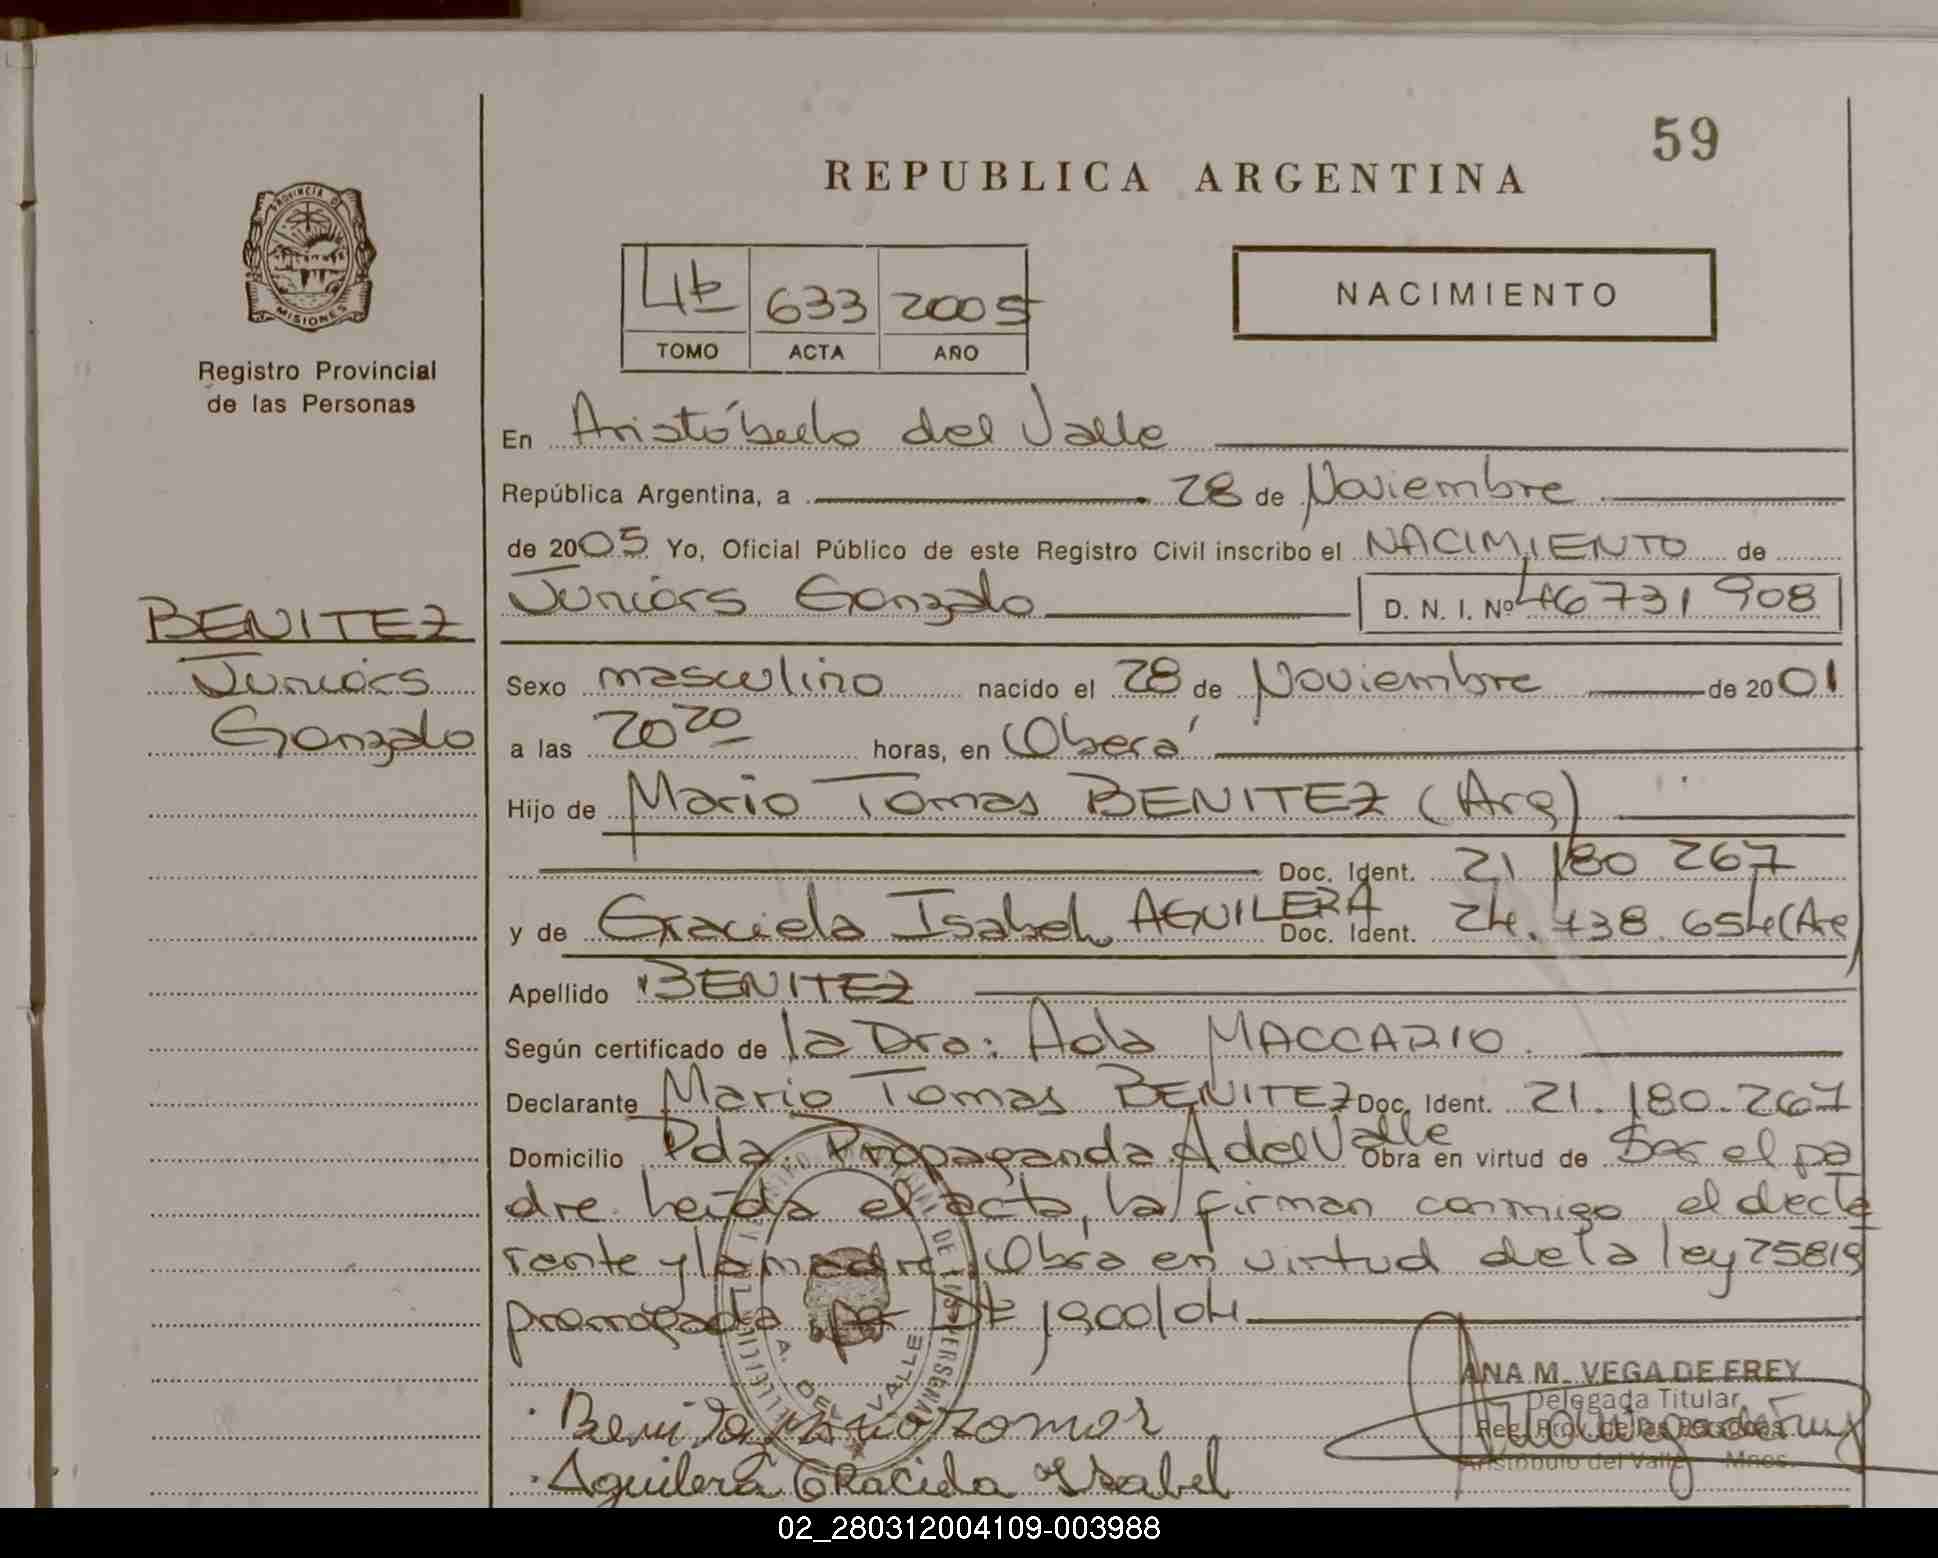 59
REPUBLICA ARGENTINA
PROVINCIA DE
MISIONES
Registro Provincial
de las Personas
4º 633 2005
TOMO ACTA AÑO
NACIMIENTO
En Aristóbulo del Valle
República Argentina, a 28 de Noviembre
de 2005 Yo, Oficial Público de este Registro Civil inscribo el NACIMIENTO de
Juniors Gonzalo D. N. I. Nº 46731908
BENITEZ
Juniors
Gonzalo
Sexo masculino nacido el 28 de Noviembre de 2001
a las 20 20 horas, en Oberá
Hijo de Mario Tomas BENITEZ (Arg)
Doc. Ident. 21 180 267
y de Graciela Isabel AGUILERA Doc. Ident. 24.738.654 (Arg
Apellido BENITEZ
Según certificado de la Dra: Ada MACCARIO.
Declarante Mario Tomas BENITEZ Doc. Ident. 21.180.267
Domicilio Pda. Propaganda A del Valle Obra en virtud de Ser el pa
dre. Leída el acta, la firman conmigo el decla
rante y la madre. Obra en virtud de la ley 25819
prorrogada por Dt 1900/04
ANA M. VEGA DE FREY
Delegada Titular
Reg. Prov. de las Personas
Aristóbulo del Valle - Mnes.
A. DEL VALLE
Benitez Mario Tomas
Aguilera Graciela Isabel
02_280312004109-003988